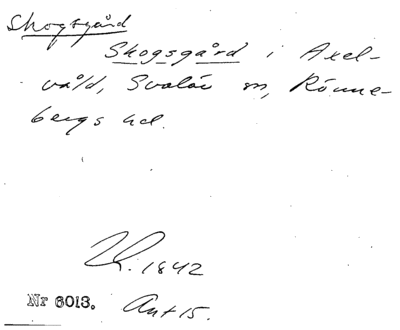 Skogsgård
Skogsgård i Axel-
vald, Svalöv sn, Rönne-
bergs hd.
1842
Nr 6013. Ant 15.